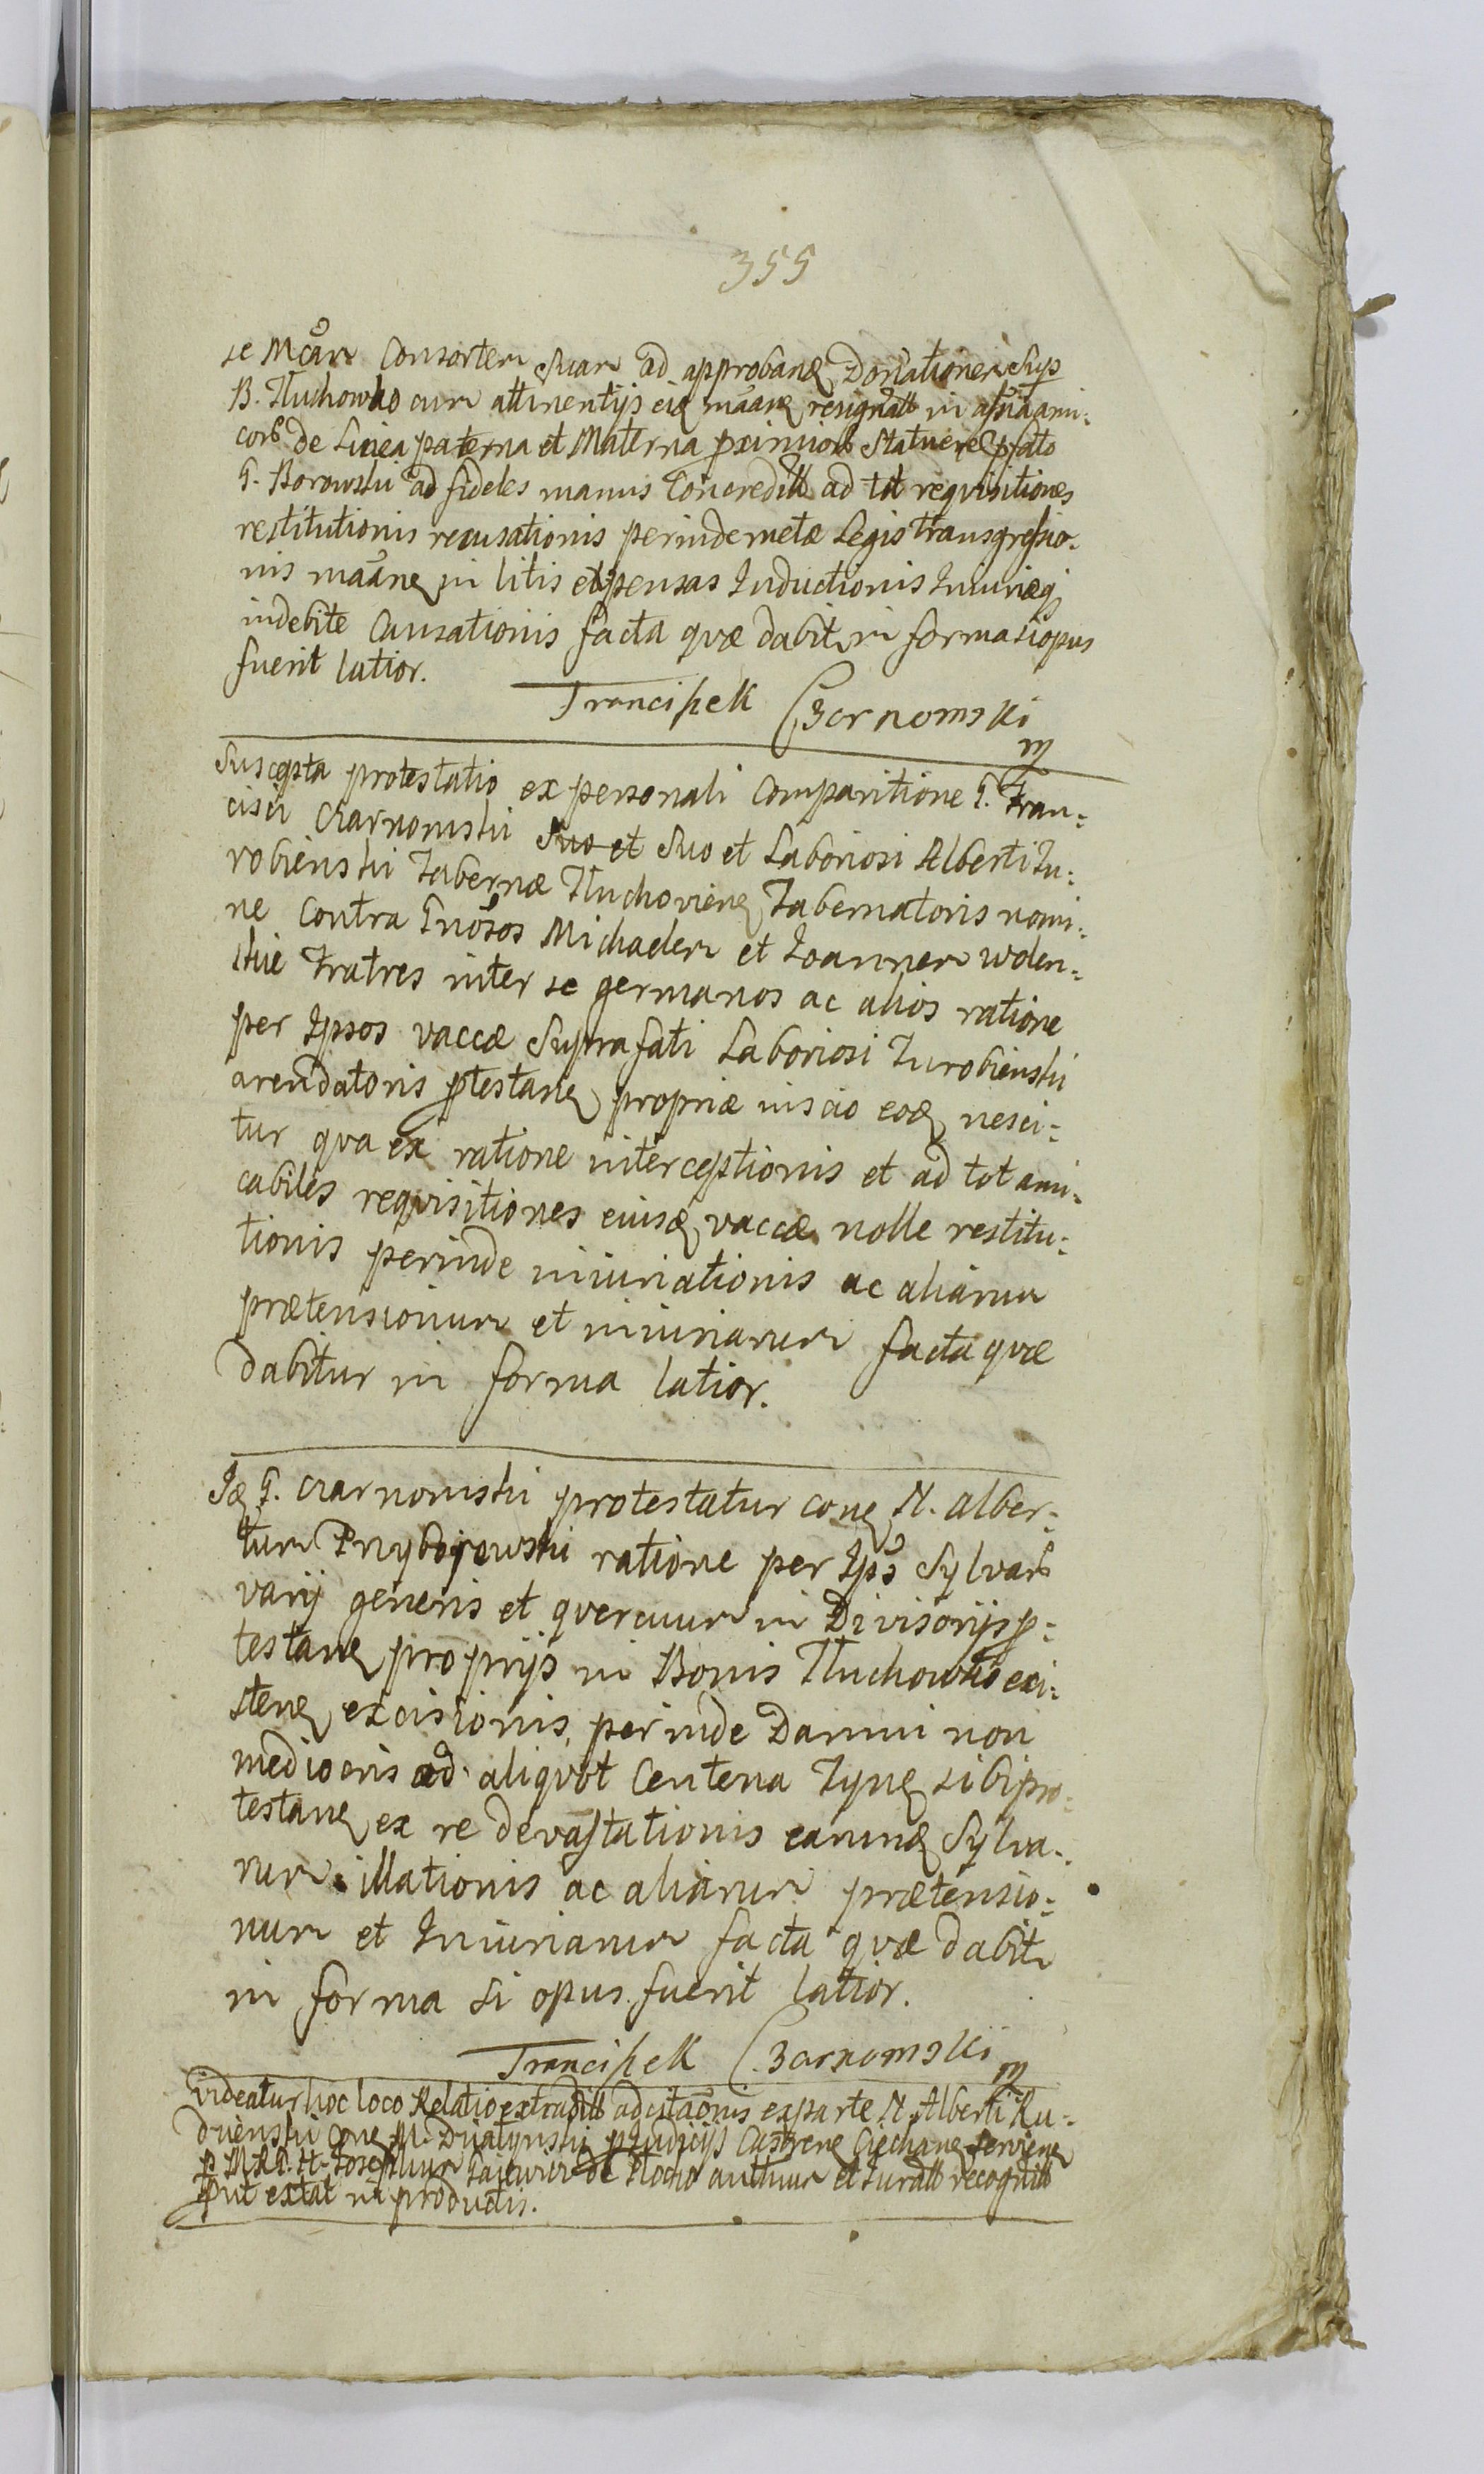 355
se Mcam Consortem Suam ad approbanq Donationem Sup
B. Tłuchowko cum attinentijs eiq maanq resignatt in assia ami-
corb de Linea paterna et Materna pximiorb Statuere pfato
G. Borowski ad fideles manus Concreditt ad tot requisitiones
restitutionis recusationis perinde metæ Legis transgressio-
nis maanq in litis expensas Inductionis Iniuriæq
indebite Causationis facta quæ dabitr in forma si opus
fuerit latior.
Franciszek Czarnomski
m
Suscepta protestatio ex personali Comparitione G. Fran=
cisci Czarnomski Suo et Suo et Laboriosi Alberti Tu=
robienski Tabernæ Tłuchovienq Tabernatoris nomi=
ne Contra Gnosos Michaelem et Ioannem Wolen=
skie Fratres inter se germanos ac alios ratione
per Ipsos vaccæ Suprafati Laboriosi Turobienski
arendatoris ptestanq propriæ inscio eoq nesci=
tur qua ex ratione interceptionis et ad tot ami-
cabiles requisitiones eiusq vaccæ nolle restitu=
tionis perinde iniuriationis ac aliarum
prætensionum et iniuriarum facta quæ
dabitur in forma latior.
Iq G. Czarnomski protestatur conq N. Alber=
tum Przyborowski ratione per Ips Sylvarb
varij generis et quercuum in Divisorijs p=
testanq proprijs in Bonis Tłuchowko exi=
stenq excisionis, perinde Damni non
mediocris ad aliquot Centena Tynq sibi pro=
testanq ex re devastationis earumq Sylva-
rum illationis ac aliarum prætensio=
num et Iniuriarum facta quæ dabitr
in forma si opus fuerit latior.
Franciszek Czarnomski
m
Videatur hoc loco Relatio extraditt adcitaonis ex parte N. Alberti Ru=
dzienski conq M. Działynski p Iudicijs Castrenq Ciechanq Servienq
p M. R. D. H. Iosephum de Płocko authum et Iuratt recognitt
put extat in productis.